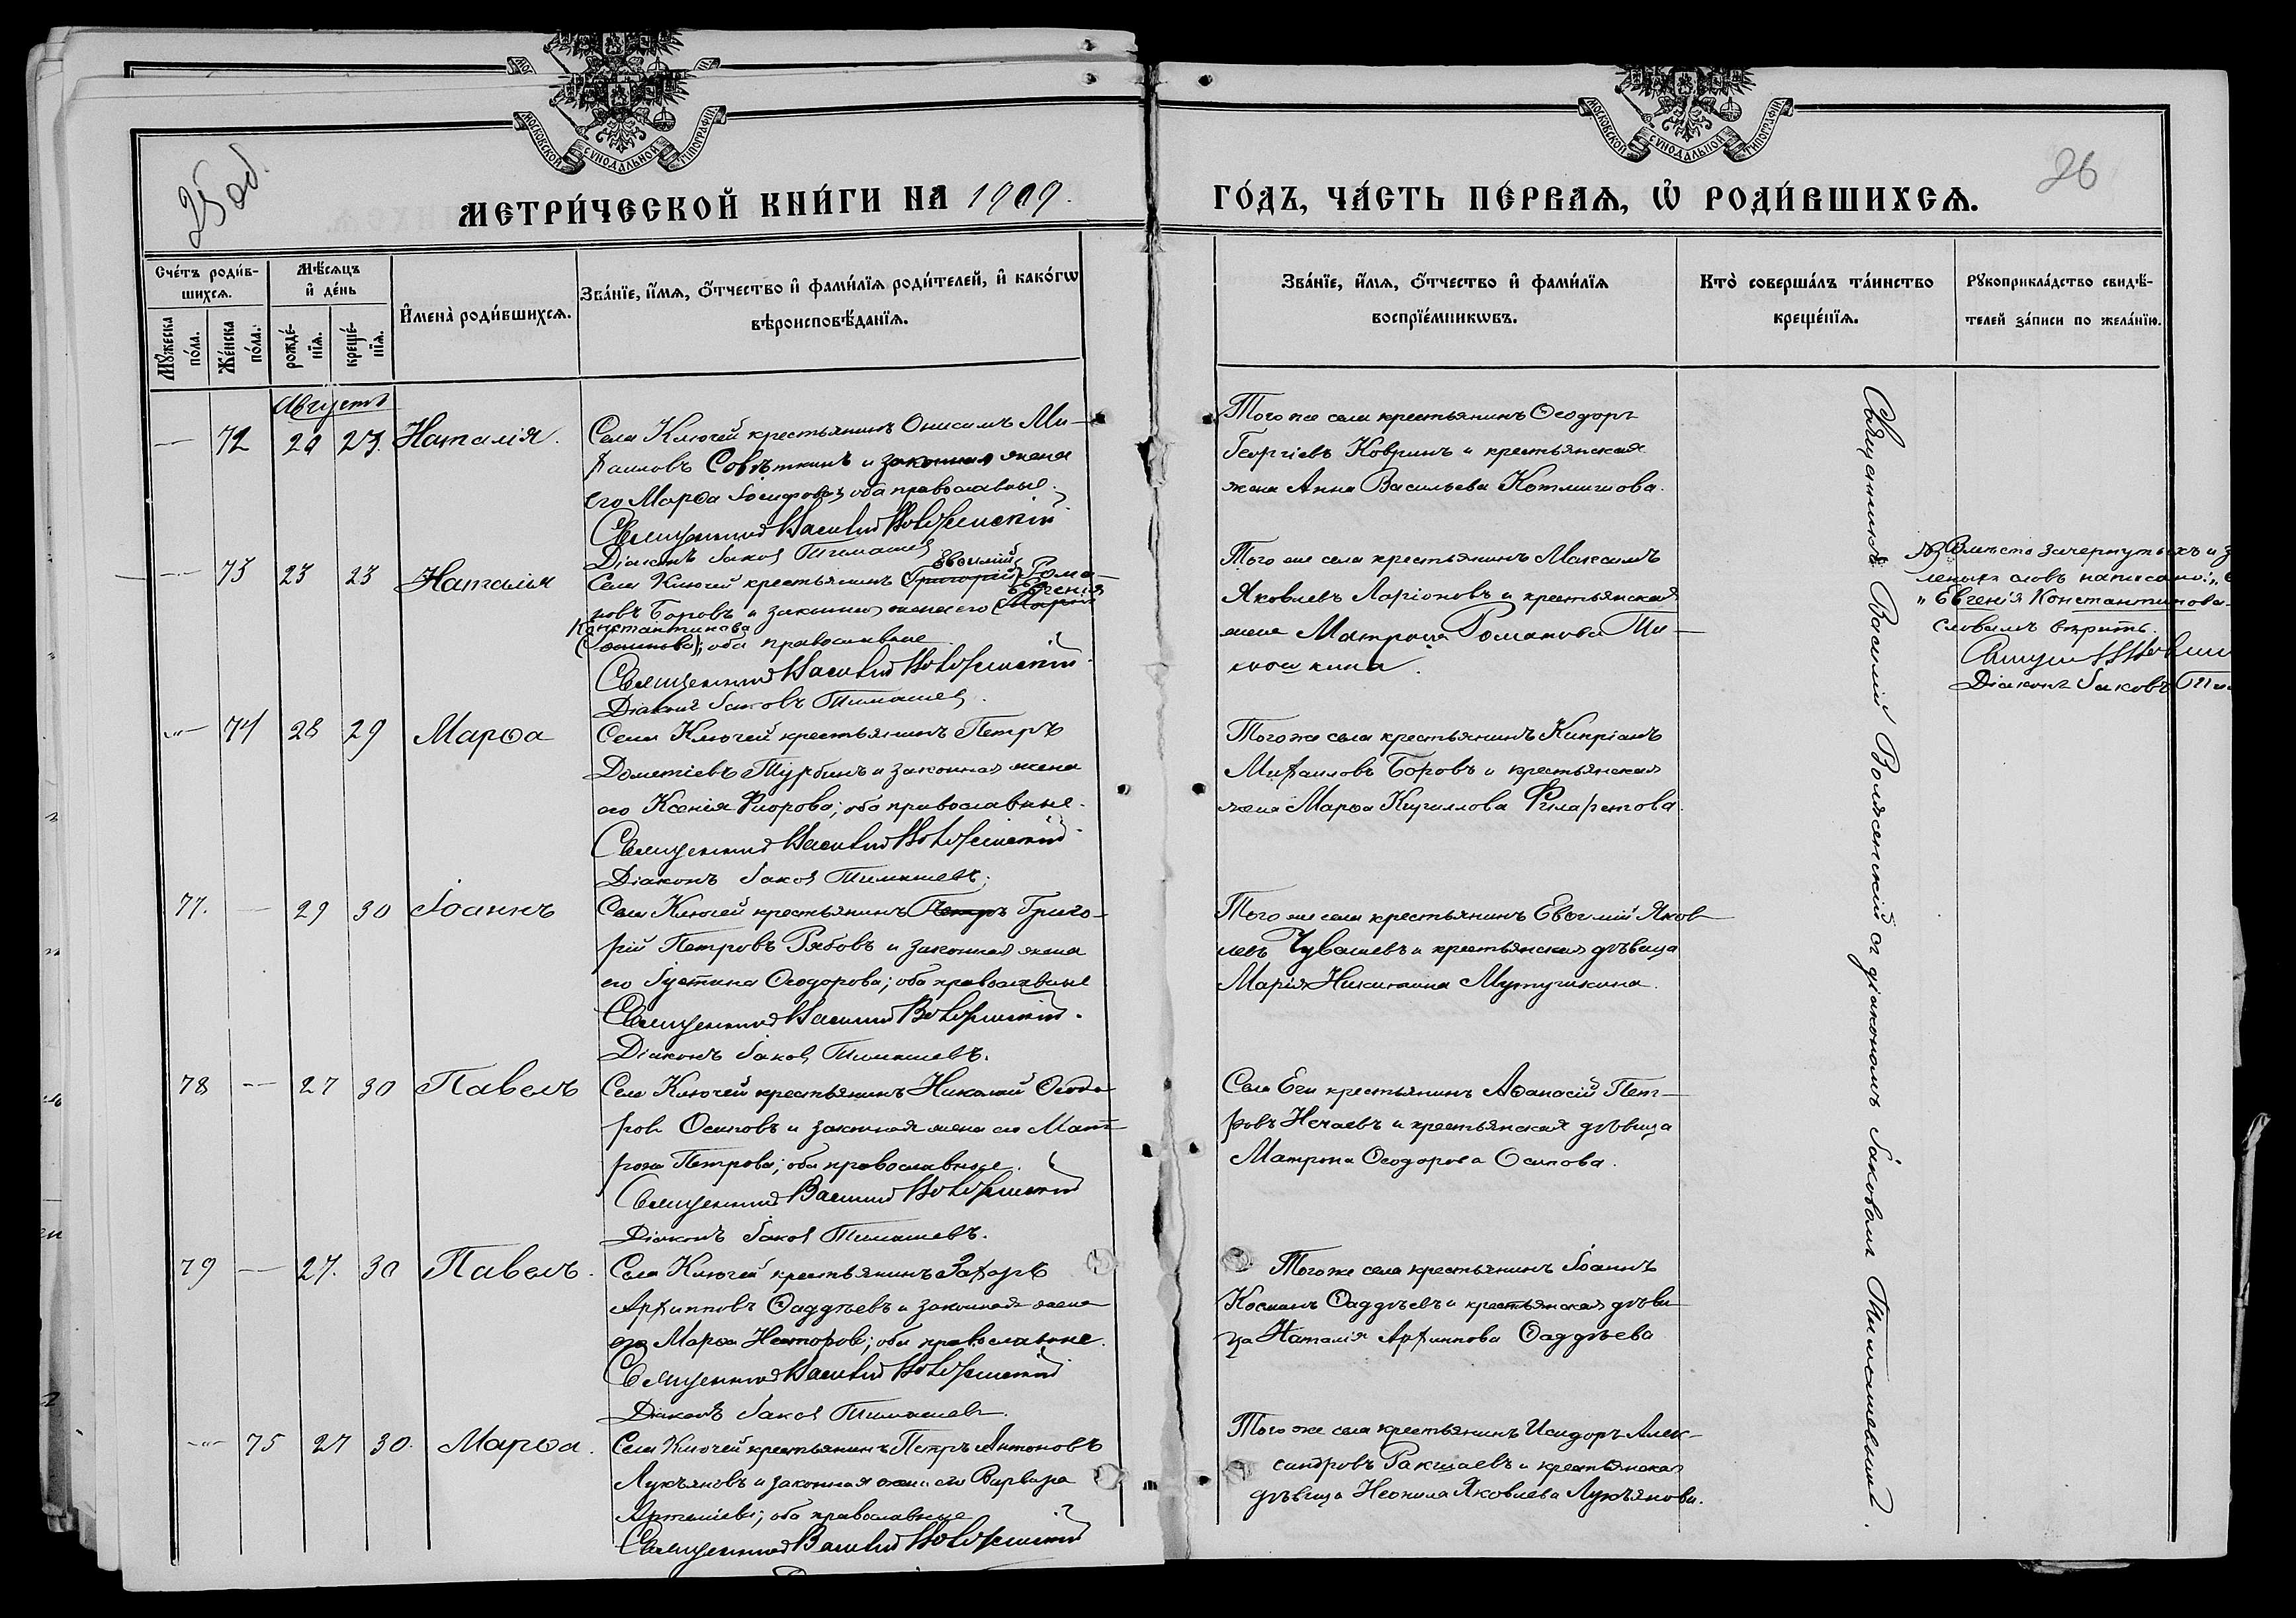 МОСКОВСКОЙ СѴНОДАЛЬНОЙ ТИПОГРАФІИ
МОСКОВСКОЙ СѴНОДАЛЬНОЙ ТИПОГРАФІИ
25 об.
26
МЕТРИ́ЧЕСКОЙ КНИ́ГИ НА 1909.
ГО́ДЪ, ЧА́СТЬ ПЕ́РВАѦ, Ѡ҆ РОДИ́ВШИХСѦ.
Сче́тъ роди́в-
шихсѧ.
Мѣ́сѧцъ
и҆ де́нь
Му́жеска
по́ла.
Же́нска
по́ла.
рожде́-
нїѧ.
креще́-
нїѧ.
И҆мена̀ роди́вшихсѧ.
Зва́нїе, и҆́мѧ, ѻ҆́тчество и҆ фами́лїѧ роди́телей, и҆ како́гѡ
вѣроисповѣ́данїѧ.
Зва́нїе, и҆́мѧ, ѻ҆́тчество и҆ фами́лїѧ
воспрїе́мникѡвъ.
Кто̀ соверша́лъ та́инство
креще́нїѧ.
Рукоприкла́дство свидѣ́-
телей за́писи по жела́нїю.
Августъ
— 72 20 23. Наталія.
Села Ключей крестьянинъ Онисимъ Ми-
хаиловъ Совѣткинъ и законная жена
его Марѳа Іосифова; оба православные.
Священникъ Василій Воляженскій
Діаконъ Іаковъ Тимашевъ
Того же села крестьянинъ Ѳеодоръ
Георгіевъ Ковринъ и крестьянская
жена Анна Васильева
— 73 23 23 Наталія
Евѳимій
Села Ключей крестьянинъ (Григорій) Рома-
Евгенія
новъ Боровъ и законная жена его (Марія
Константинова
Іосипова); оба православные
Священникъ Василій Воляженскій
Діаконъ Іаковъ Тимашевъ.
Того же села крестьянинъ Максимъ
Яковлевъ Ларіоновъ и крестьянская
жена Матрона Романова
Вмѣсто зачеркнутыхъ и
словъ написано:
"Евгенія Константинова
словамъ вѣрить.
Діаконъ Іаковъ
—"— 74 28 29 Марѳа
Села Ключей крестьянинъ Петръ
Дометіевъ Турбинъ и законная жена
его Ксенія Флорова; оба православные.
Священникъ Василій Воляженскій
Діаконъ Іаковъ Тимашевъ.
Того же села крестьянинъ Кипріанъ
Михаиловъ Боровъ и крестьянская
жена Марѳа Кириллова Филаретова.
77. — 29 30 Іоаннъ
Села Ключей крестьянинъ Петръ Григо-
рій Петровъ Рябовъ и законная жена
его Іустина Ѳеодорова; оба православные
Священникъ Василій Воляженскій.
Діаконъ Іаковъ Тимашевъ.
Того же села крестьянинъ Евѳимій Яков-
левъ Чувашевъ и крестьянская дѣвица
Марія Никитина Мутушкина.
78 — 27 30 Павелъ
Села Ключей крестьянинъ Николай Ѳеодо-
ровъ Осиповъ и законная жена его Мат-
рона Петрова; оба православные.
Священникъ Василій Воляженскій
Діаконъ Іаковъ Тимашевъ.
Села Еги крестьянинъ Аѳанасій Пет-
ровъ Нечаевъ и крестьянская дѣвица
Матрона Ѳеодорова Осипова.
79 — 27. 30 Павелъ.
Села Ключей крестьянинъ Захаръ
Архипповъ Ѳаддѣевъ и законная жена
его Марѳа Несторова; оба православные.
Священникъ Василій Воляженскій
Діаконъ Іаковъ Тимашевъ.
Того же села крестьянинъ Іоаннъ
Космынъ Ѳаддѣевъ и крестьянская дѣви-
ца Наталія Архиппова Ѳаддѣева
—"— 75 27 30. Марѳа.
Села Ключей крестьянинъ Петръ Антоновъ
Лукъяновъ и законная жена его Варвара
Артеміева; оба православные
Священникъ Василій Воляженскій
Того же села крестьянинъ Исидоръ Алек-
сандровъ Ракшаевъ и крестьянская
дѣвица Неонила Яковлева Лукъянова.
Священникъ Василій Воляженскій съ діакономъ Іаковомъ Тимашевымъ.